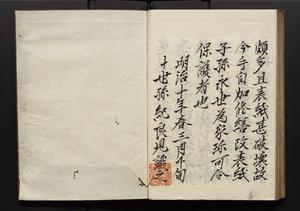 頗多且表紙甚破壊故
今手自加修繕改表紙
子孫永世為家珎可令
保護者也
明治十年春三月下旬
十世孫紀良現識之